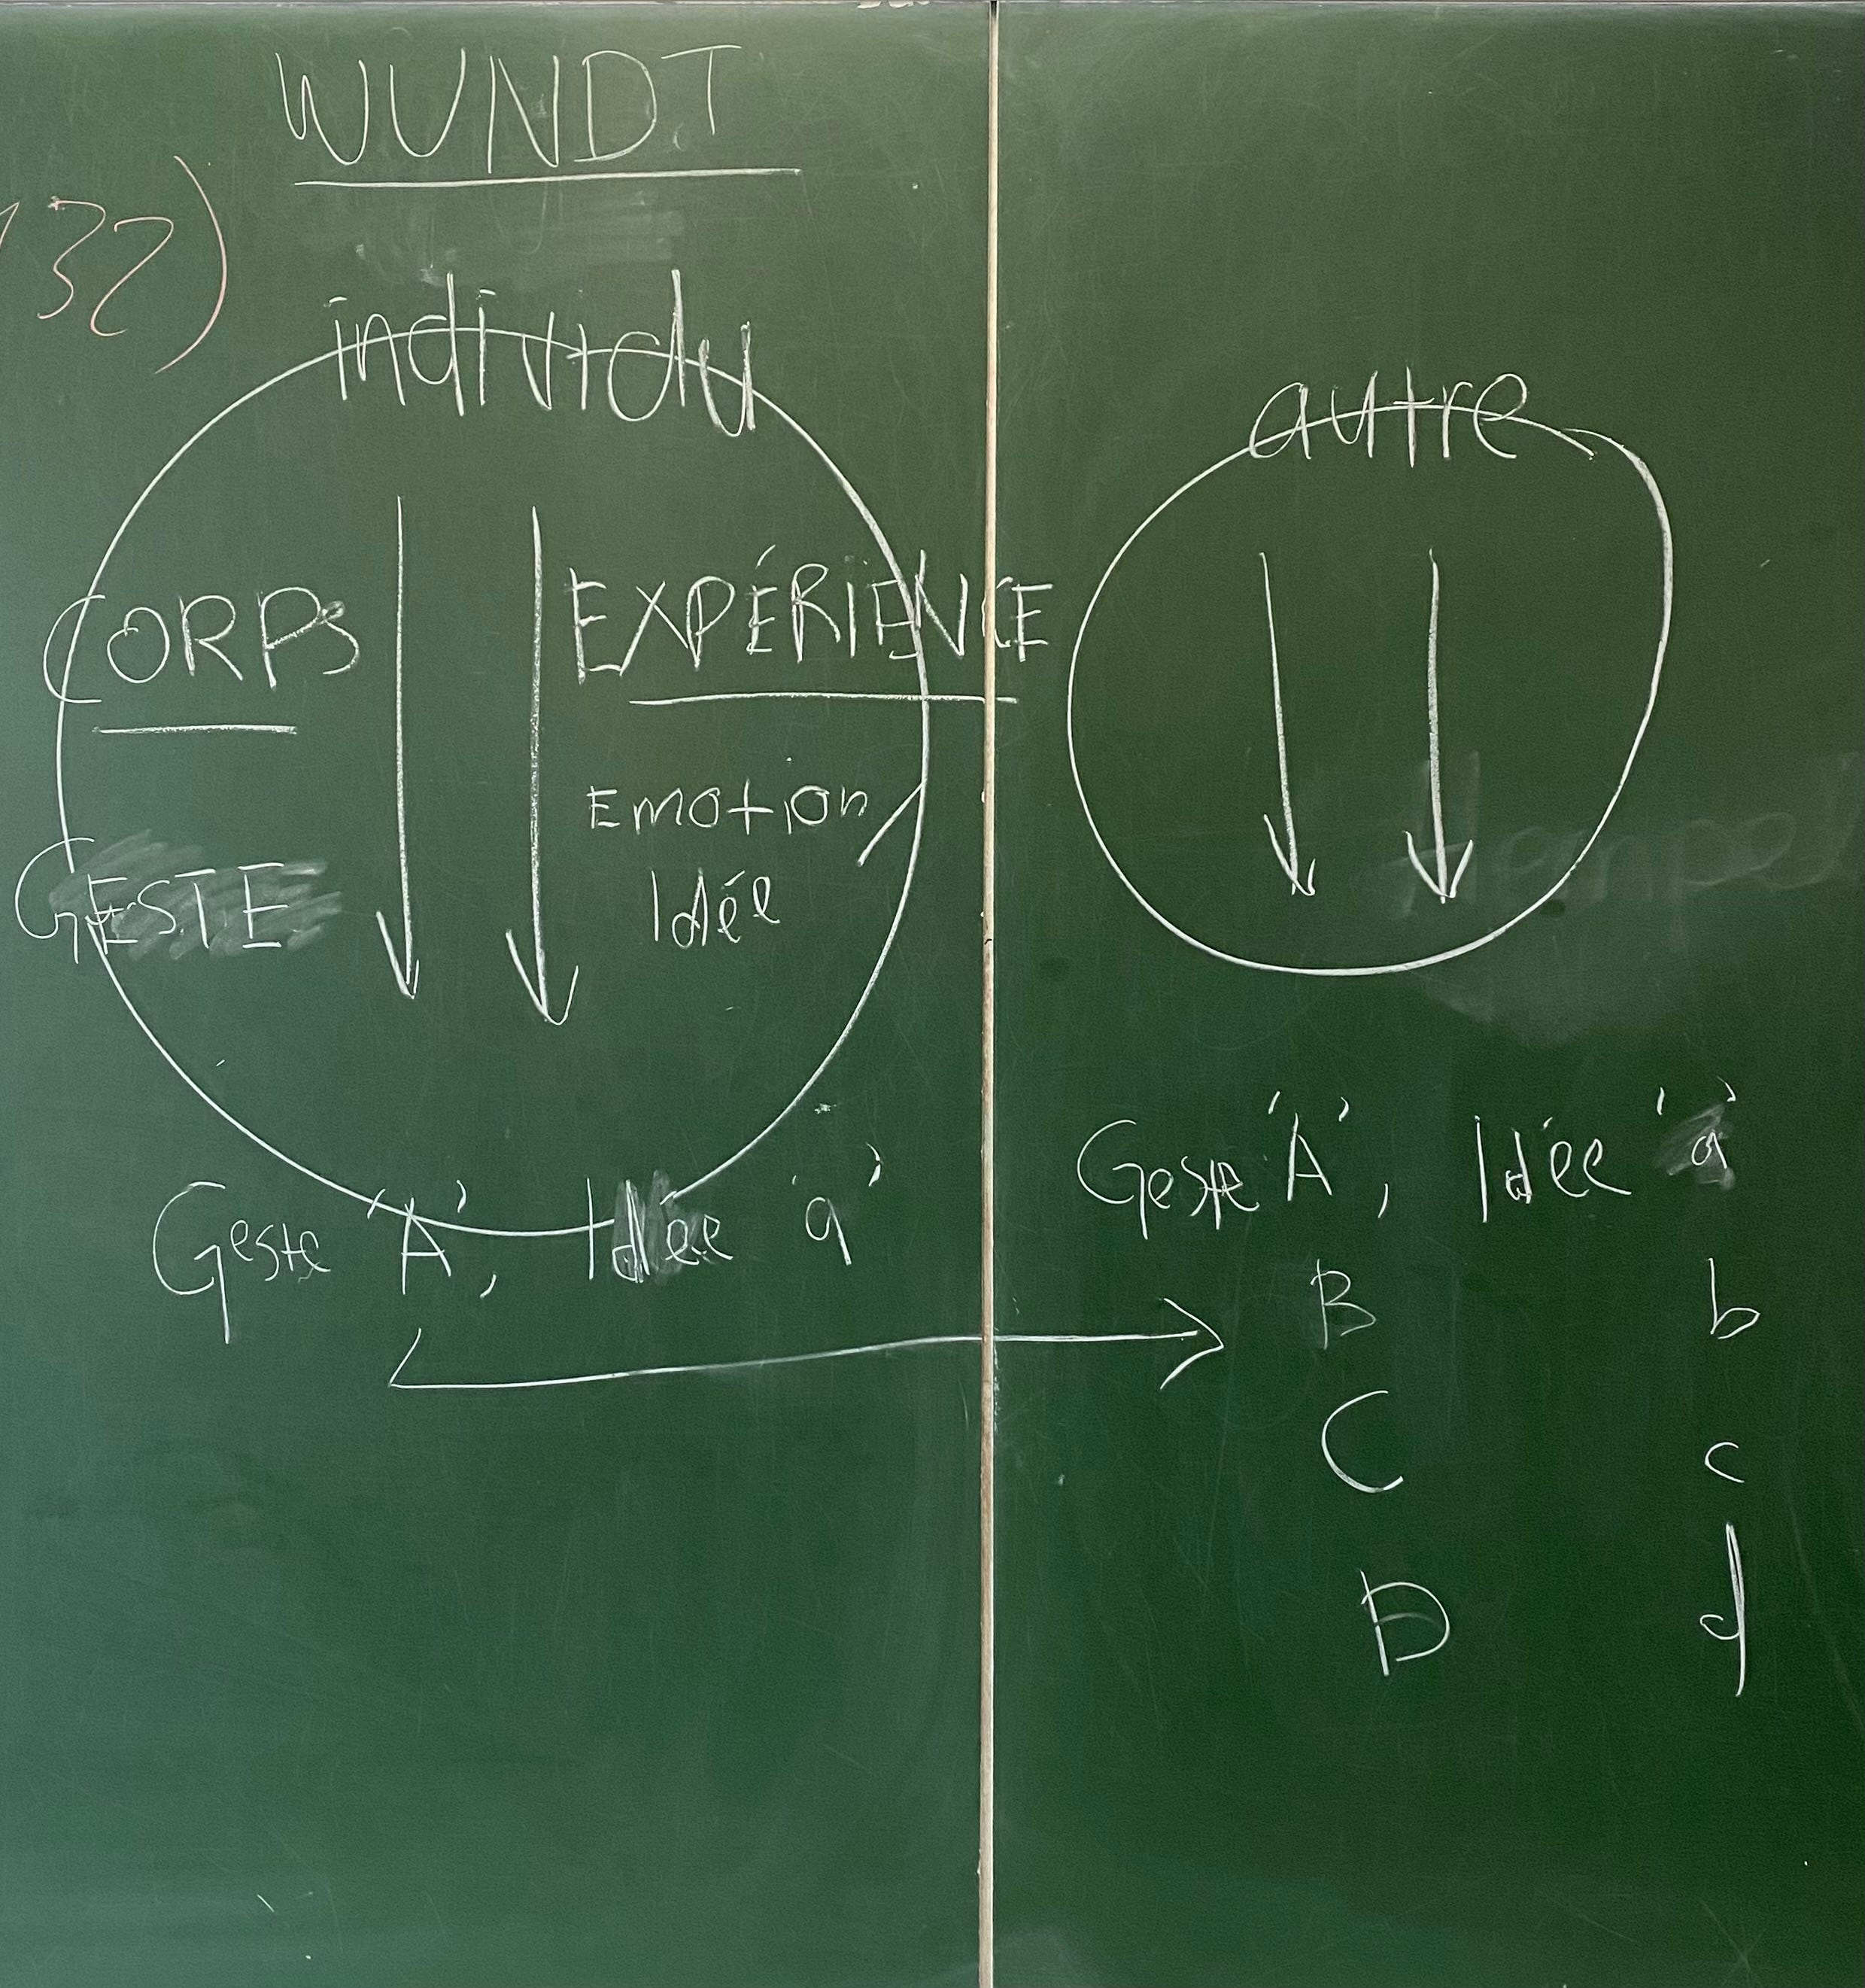 WUNDT
132)
individu
CORPS
EXPÉRIENCE
Emotion
Idée
GESTE
Geste 'A', Idée 'a'
autre
Geste 'A', Idée 'a'
B b
C c
D d